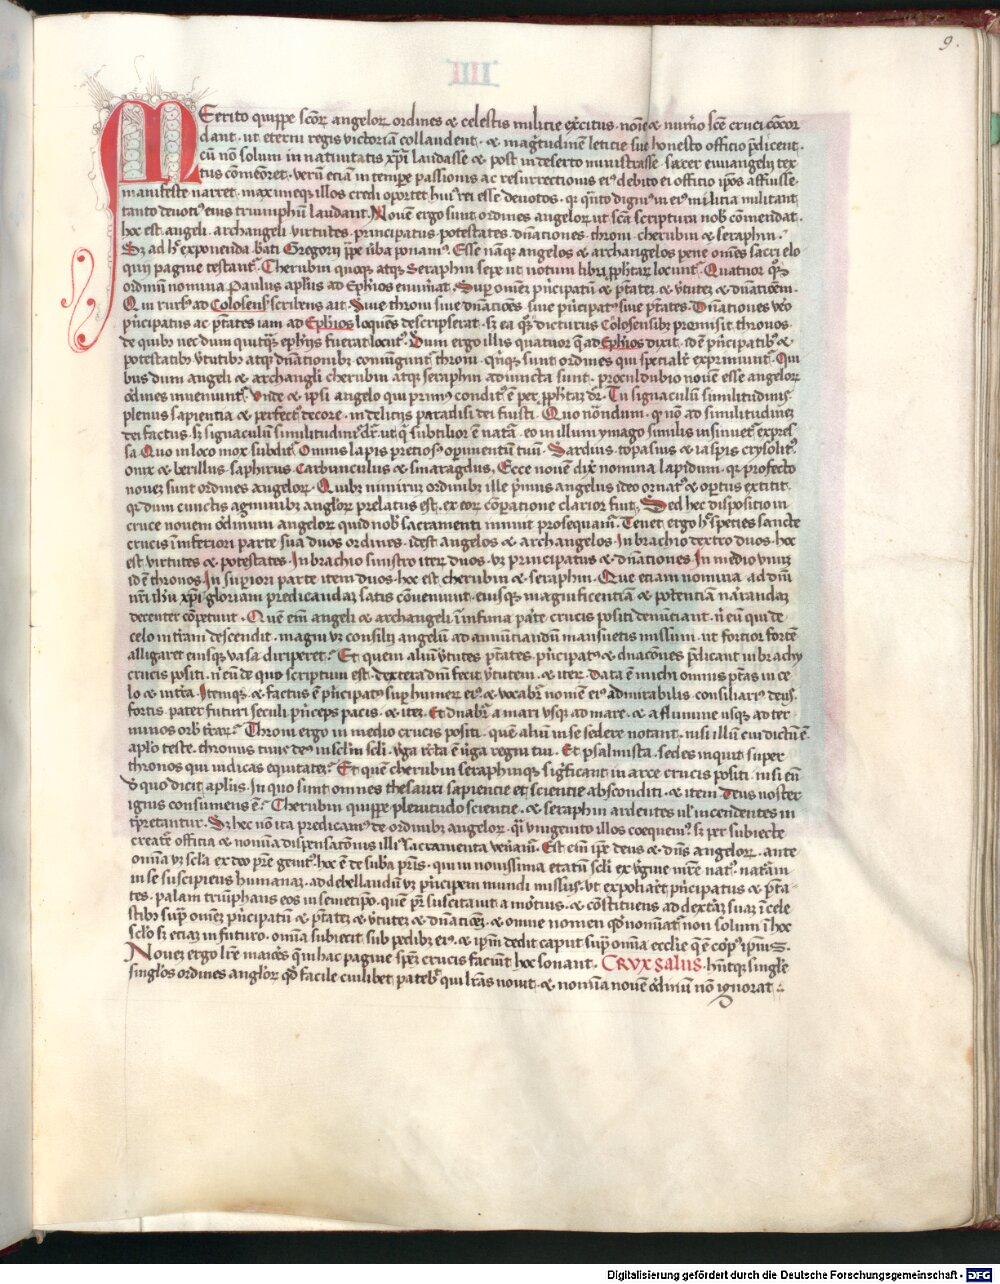 9.
IIII
MEerito quippe scōꝝ angeloꝝ ordines & celestis militie exc̄itus · noīe & num̄o scē cruci cōcor
dant · ut eterni regis victoriā collaudent · & mag̅tudinē leticie sue honesto officio p̄dicent ·
cū nō solum in nativitatis xp̄i laudasse & post in deserto ministrasse · sacer euuangelij tex
tus cōmēoret · verū eciā in tempe passionis ac resurrectionis eiꝰ debito ei officio ip̄os affuisse
manifeste narret · maximeqꝫ illos credi oportet huiꝰ rei esse devotos · qi q̄nto digniꝰ in eiꝰ militia militant
tanto devotiꝰ eius triumphū laudant. Novē ergo sunt ordines angeloꝝ ut scā scriptura nob̄ cōmendat ·
hoc est · angeli · archangeli · virtutes · principatus · potestates · dn̄ationes · throni · cherubin & seraphin ·
Sꝫ ad h̄ exponenda b̄ati Gregorij pp̄e v̄ba ponamꝰ. Esse nāqꝫ angelos & archangelos pene om̄es sacri elo
quij pagine testant̄. Cherubin quoqꝫ atqꝫ Seraphin sepe ut notum libri ꝓph̄taꝝ locunt̄. Quatuor qꝫ
ordinū nomina Paulus apl̄us ad Ephios enum̄at. Sup om̄eꝫ p̄ncipatū & p̄tateꝫ & v̄tuteꝫ & dn̄ationem.
Qui rursꝰ ad Colosenſ scribens ait. Sive throni sive dn̄acioēs sive p̄ncipatꝰ sive p̄tates. Dn̄ationes v̄o
p̄ncipatus ac p̄tates iam ad Ephios loquēs descripserat · sꝫ ea qꝫ dicturus Colosensibꝫ premisit thronos ·
de quibꝫ nec dum quicq̄ ephijs fuerat locutꝰ. Dum ergo illis quatuor q̄ ad Ephios dixit · id ē p̄ncipatibꝫ &
potestatibꝫ v̄tutibꝫ atqꝫ dn̄ationibꝫ coniungunt̄ throni · qnqꝫ sunt ordines qui specialit̄ exprimunt̄. Qui
bus dum angeli & archangeli cherubin atqꝫ seraphin adiuncta sunt · proculdubio novē esse angeloꝝ
ōdines inveniunt̄. Vnde & ipsi angelo qui primꝰ condit̄ ē per ꝓph̄taꝫ dr̄. Tu signaculū similitudinis
plenus sapientia & perfectꝰ decore · in delicijs paradisi dei fuisti. Quo nōndum · qi nō ad similitudineꝫ
dei factus · sꝫ signaculū similitudinis dr̄ · ut qi subtilior ē natā · eo in illum ymago similis insinuet̄ expres
sa. Quo in loco mox subdit̄. Omnis lapis preciosꝰ op̄imentū tuū. Sardius topasius & iaspis crysolitꝰ
onix & berillus saphirus carbunculus & smaragdus. Ecce novē dixit nomina lapidum · qi profecto
noveꝫ sunt ordines angeloꝝ. Quibꝫ nimirū ordinibꝫ ille p̄mus angelus ideo ornatꝰ & op̄tus extitit ·
qi dum cunctis agminibꝫ angl̄oꝝ prelatus est · ex eoꝝ cōp̄atione clarior fuit. Sed hec dispositio in
cruce novem ōdinum angeloꝝ quid nob̄ sacramenti innuit prosequam̄. Tenet ergo h̄ species sancte
crucis ī inferiori parte sua duos ordines · id est angelos & archangelos. In brachio dextro duos · hoc
est virtutes & potestates. In brachio sinistro iteꝫ duos · vꝫ principatus & dn̄ationes. In medio vnuꝫ
id ē thronos. In sup̄iori parte item duos · hoc est cherubin & seraphin. Que etiam nomina · ad dn̄i
nr̄i ih̄u xp̄i gloriam predicandaꝫ satis cōveniunt · eiusqꝫ magnificentiā & potentiā narrandaꝫ
decenter cōpetunt. Quē em̄ angeli & archangeli ī infima p̄arte crucis positi denūciant · nꝰ eū qui de
celo in tr̄am descendit · magni vꝫ consilij angelū ad annūtiandū mansuetis missum · ut fortior fortē
alligaret eiusqꝫ vasa diriperet. Et quem aliū v̄tutes p̄tates p̄ncipatꝰ & dnacōnes p̄dicant in brachijs
crucis positi · nꝰ eū de quo scriptum est · dextera dn̄i fecit v̄tutem · & item · data ē michi omnis p̄tas in ce
lo & in tr̄a. Itemqꝫ & factus ē p̄ncipatꝰ sup humeꝝ eiꝰ & vocabr̄ nomē eiꝰ admirabilis consiliariꝰ deus
fortis · pater futuri seculi p̄nceps pacis · & iteꝫ. Et dn̄abr̄ a mari vsqꝫ ad mare · & a flumine usqꝫ ad ter
minos orb̄ traꝝ. Throni ergo in medio crucis positi · quē aliū in se sedere notant · nisi illū cui dictū ē
apl̄o teste · thronus tuus deꝰ in sclm̄ scli · v̄ga rc̄ta ē v̄ga regni tui. Et psalmista · sedes inquit super
thronos qui iudicas equitateꝫ. Et quē cherubin seraphinqꝫ sig̅ficant in arce crucis positi nisi eū
d̄ quo dicit apl̄us. In quo sunt omnes thesauri sapientie et scientie absconditi · & item Deus noster
ignis consumens ē. Cherubin quippe plenitudo scientie · & seraphin ardentes vl̄ incendentes in
tp̄retantur. Sꝫ hec nō ita predicamꝰ de ordinibꝫ angeloꝝ · q̄i vnigenito illos coequemꝰ · sꝫ per subiecte
creatēr officia & nomīa dispensatōnis illiꝰ sacramenta ven̄am̄. Est em̄ ip̄e deus & dn̄s angeloꝝ · ante
omīa vꝫ scl̄a ex deo pr̄e genitꝰ hoc ē de subā pr̄is · qui in novissima etatū scli ex v̄gine mr̄e natꝰ · natr̄am
in se suscipiens humanaꝫ · ad debellandū vꝫ p̄ncipem mundi missus · vt expoliar̄et p̄ncipatus & p̄ta-
tes · palam triūphans eos in semetip̄o · quē pr̄ suscitavit a mōtuis · & cōstituens ad dext̄aꝫ suaꝫ ī cele
stibꝫ sup̄ om̄eꝫ p̄ncipatū & p̄tateꝫ & v̄tuteꝫ & dn̄atioēꝫ · & omne nomen qd̄ nomīat̄ non solum ī hoc
scl̄o sꝫ eciaꝫ in futuro · omīa subiecit sub pedibꝫ eiꝰ · & ip̄m dedit caput sup̄ omīa ecclīe q̄ ē corpꝰ ip̄ius.
Noveꝫ ergo lr̄e maiōes q̄ in hac pagine spēꝫ crucis faciūt hoc sonant · CRVX salus · hn̄tqꝫ singl̄e
singl̄os ordines angloꝝ qd̄ facile cuilibet pateb̄ qui lr̄as novit · & nomīa novē ōdinū nō ignorat :·
Digitalisierung gefördert durch die Deutsche Forschungsgemeinschaft - DFG